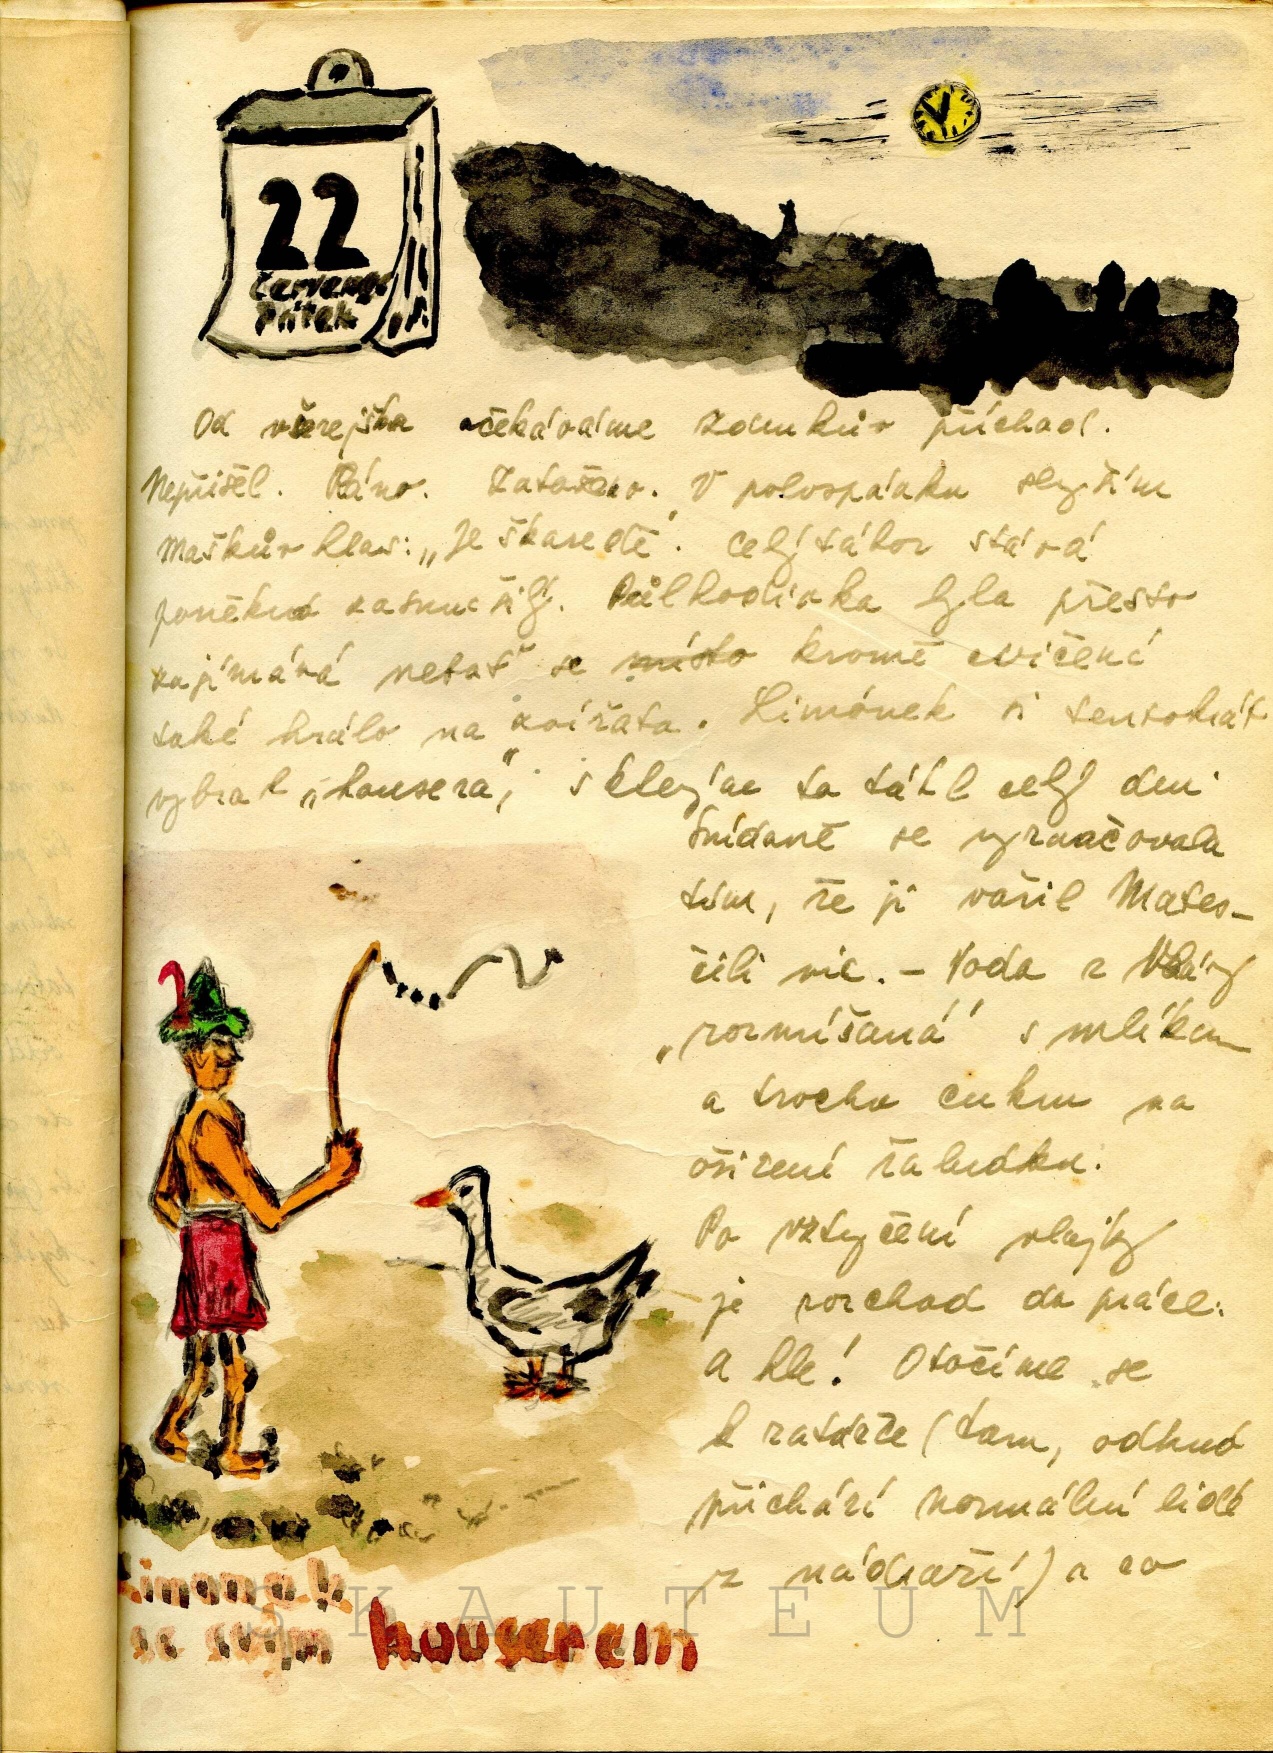 22
Července
Pátek
Od včerejška očekáváme Zdenkův příchod.
Nepřišel. Ráno. Zataženo. V polospánku slyším
Maškův hlas: „Je škaredě". Celý tábor stává
poněkud zasmušilý. Půlhodinka byla přesto
zajímavá neboť se místo kromě cvičení
také hrálo na zvířata. Limónek si tentokrát
vybral „housera", s kterým to táhl celý den
Snídaně se vyznačovala
tím, že ji vařil Mates-
čili nic. - Voda z Vláry
„rozmíšaná" s mlíkem
a trochu cukru na
ošizení žaludku.
Po vztyčení vlajky
je rozchod do práce.
A hle! Otočíme se
k zatáčce (tam, odkud
přichází normální lidé
z nádraží) a co
se svým houserem
SKAUTEUM